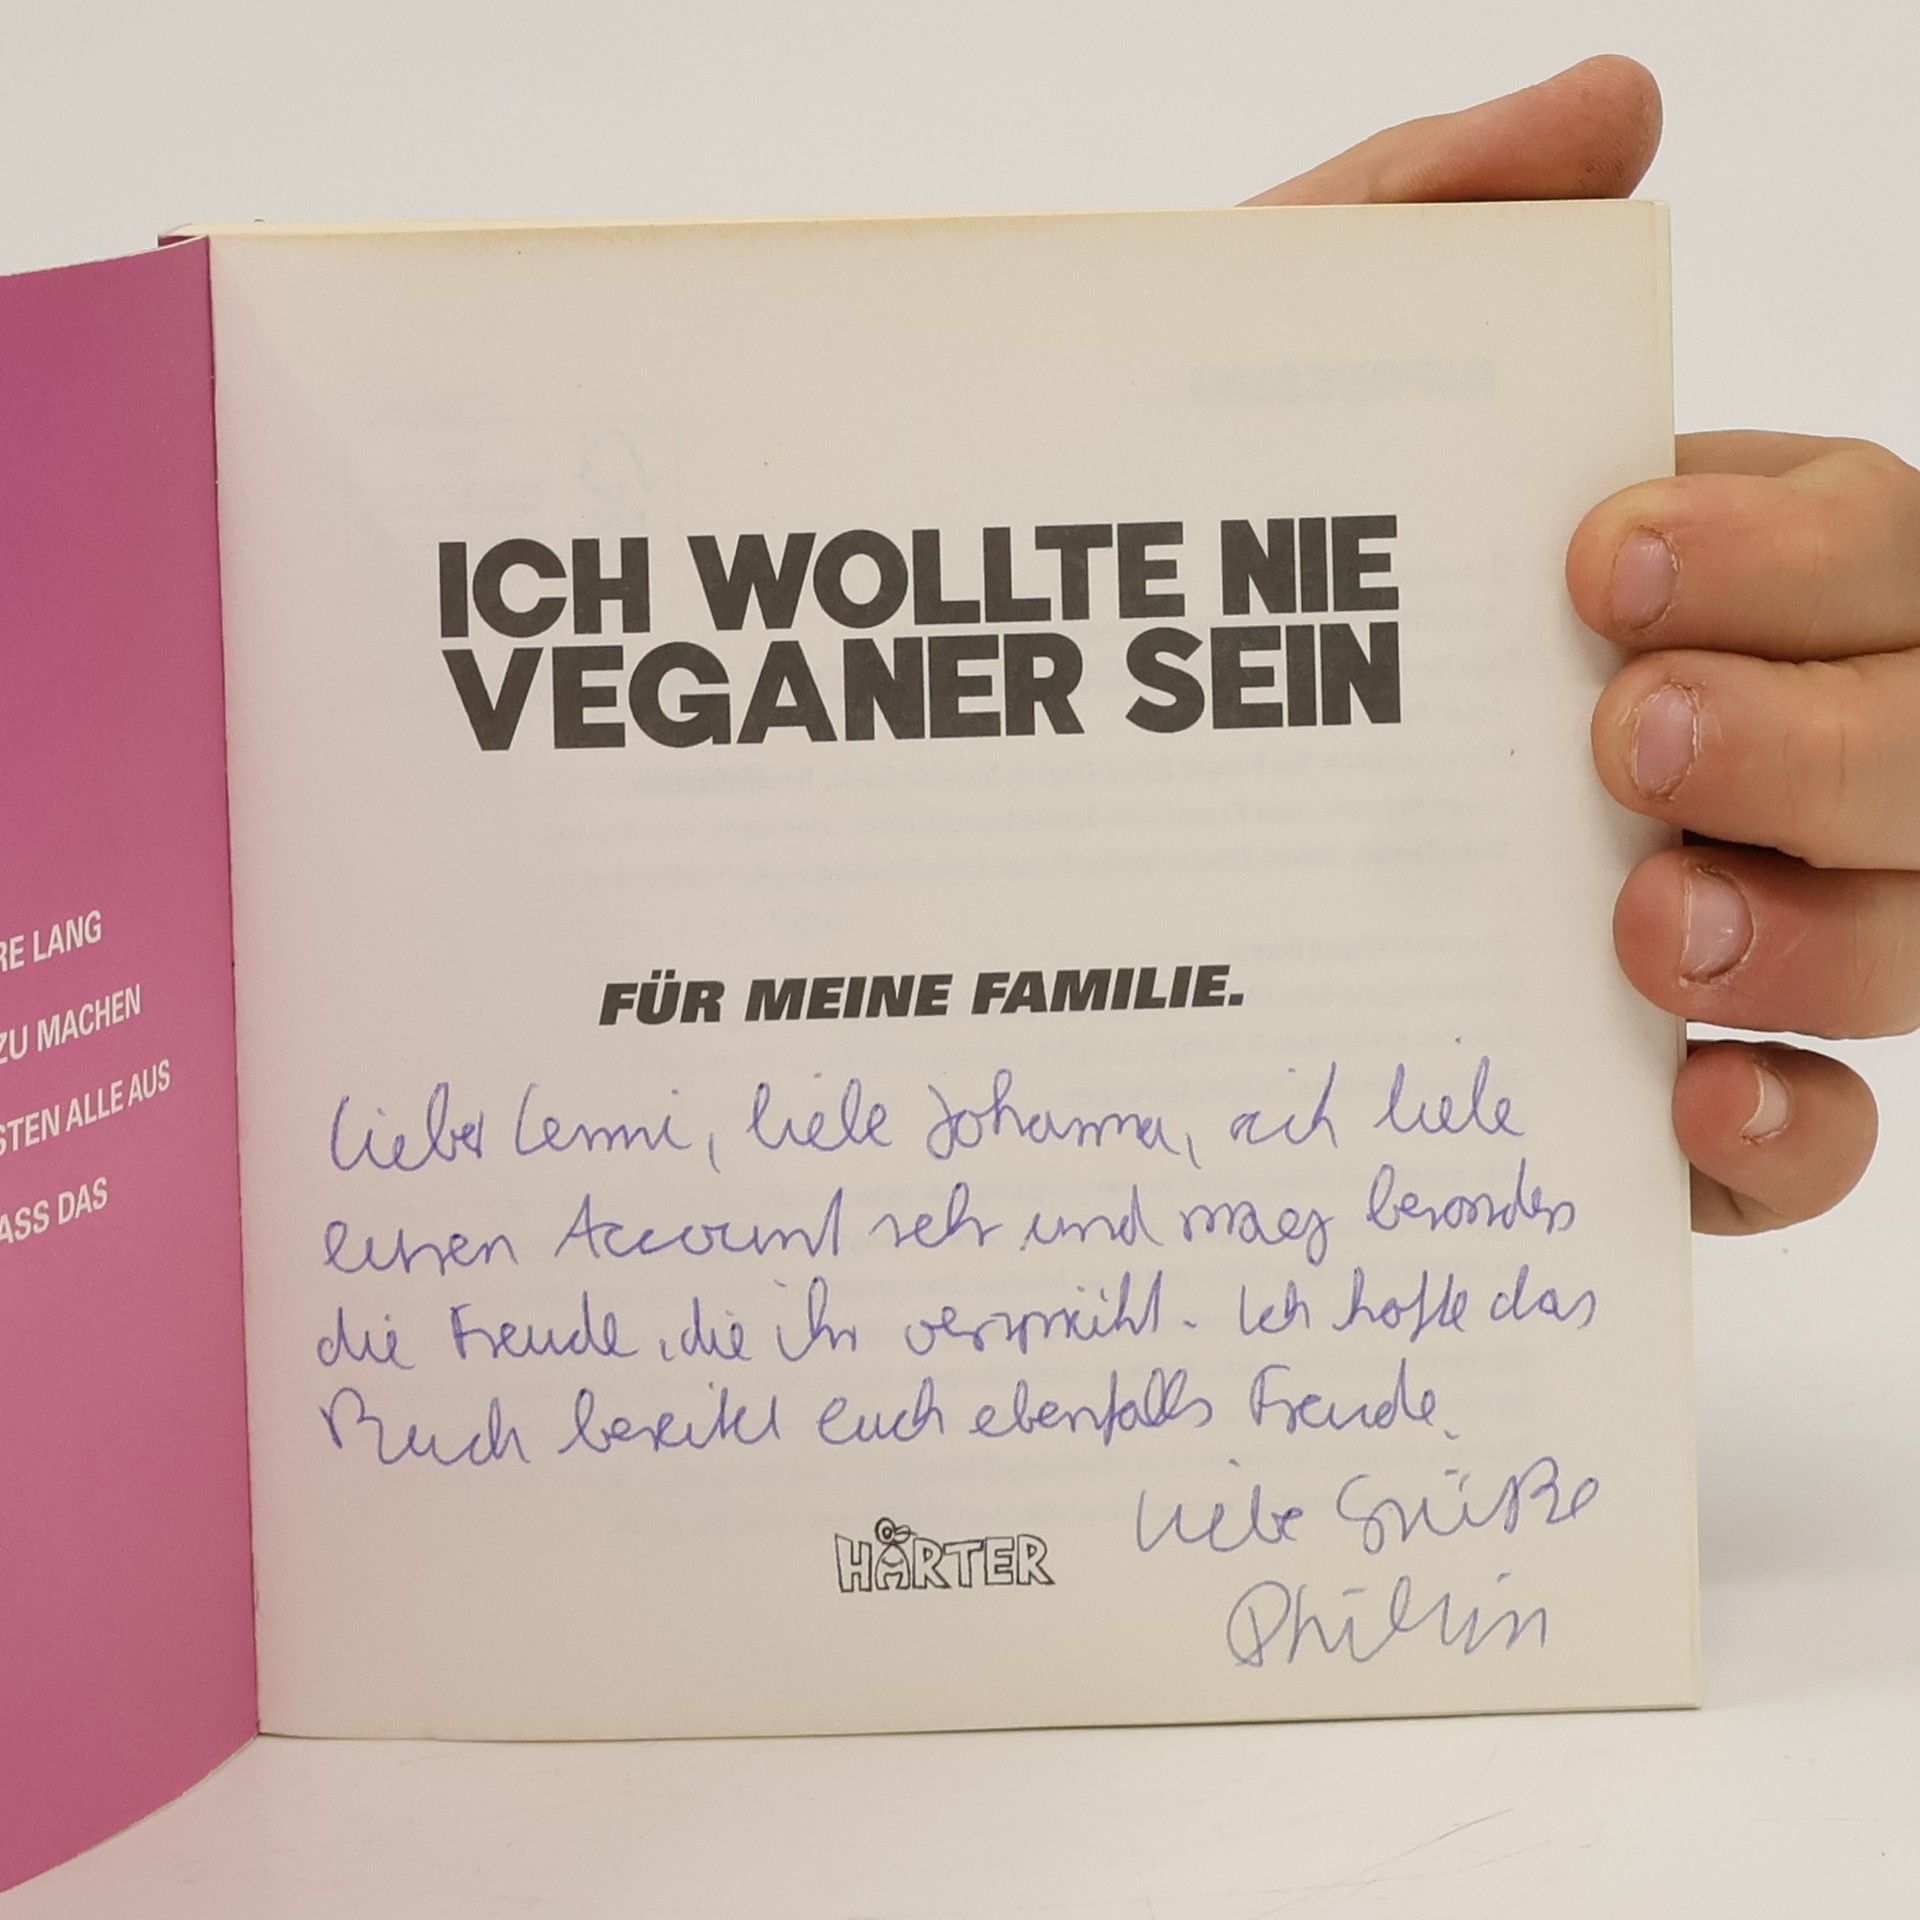 RE LANG
ZU MACHEN
STEN ALLE AUS
ASS DAS
ICH WOLLTE NIE
VEGANER SEIN
FÜR MEINE FAMILIE.
Lieber Lenni, liebe Johanna, ich liebe
euren Account sehr und mag besonders
die Freude, die ihr versprüht. Ich hoffe das
Buch bereitet euch ebenfalls Freude.
Liebe Grüße
Philipp
HÄRTER